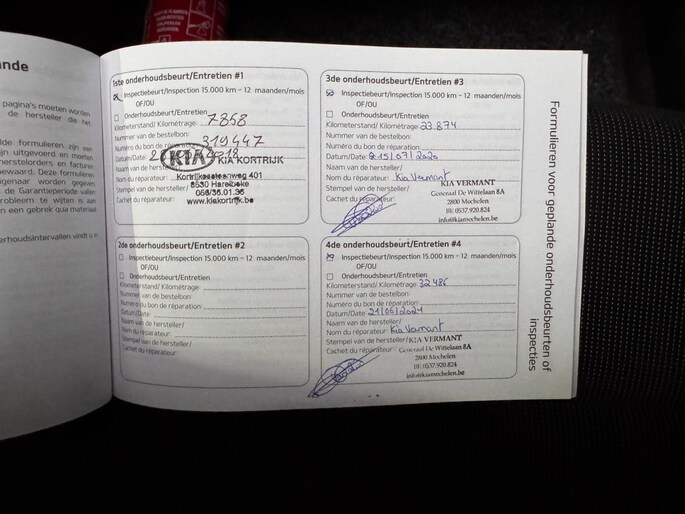 ande
pagina's moeten worden
de hersteller die het
lde formulieren zijn een
jn uitgevoerd en moeten
hersteldorders en facturen
ewaard. Deze formulieren
igenaar worden gegeven.
de Garantieperiode vallen
robleem te wijten is aan
n een gebrek qua materiaal
erhoudsintervallen vindt u in
1ste onderhoudsbeurt/Entretien #1
Inspectiebeurt/Inspection 15.000 km - 12 maanden/mois
OF/OU
Onderhoudsbeurt/Entretien
Kilometerstand/ Kilométrage: 7858
Nummer van de bestelbon:
Numéro du bon de réparation: 319447
Datum/Date:
Naam van de hersteller/
KIA KIA KORTRIJK
Nom du réparateur: Kortrijksesteenweg 401
Stempel van de hersteller/ 8530 Harelbeke
Cachet du 056/36.01.36
www.kiakortrijk.be
2de onderhoudsbeurt/Entretien #2
Inspectiebeurt/Inspection 15.000 km - 12 maanden/mois
OF/OU
Onderhoudsbeurt/Entretien
Kilometerstand/ Kilométrage:
Nummer van de bestelbon:
Numéro du bon de réparation:
Datum/Date:
Naam van de hersteller/
Nom du réparateur:
Stempel van de hersteller/
Cachet du réparateur:
3de onderhoudsbeurt/Entretien #3
Inspectiebeurt/Inspection 15.000 km - 12 maanden/mois
OF/OU
Onderhoudsbeurt/Entretien
Kilometerstand/ Kilométrage: 23.874
Nummer van de bestelbon:
Numéro du bon de réparation:
Datum/Date: 15/07/2020
Naam van de hersteller/
Nom du réparateur: Kia Vermant
Stempel van de hersteller/ KIA VERMANT
Cachet du réparateur: Generaal De Wittelaan 8A
2800 Mechelen
BE 0537.920.824
info@kiamechelen.be
4de onderhoudsbeurt/Entretien #4
Inspectiebeurt/Inspection 15.000 km - 12 maanden/mois
OF/OU
Onderhoudsbeurt/Entretien
Kilometerstand/ Kilométrage: 32486
Nummer van de bestelbon:
Numéro du bon de réparation:
Datum/Date: 21/06/2021
Naam van de hersteller/
Nom du réparateur: Kia Vermant
Stempel van de hersteller/ KIA VERMANT
Cachet du réparateur: Generaal De Wittelaan 8A
2800 Mechelen
BE 0537.920.824
info@kiamechelen.be
Formulieren voor geplande onderhoudsbeurten of
inspecties